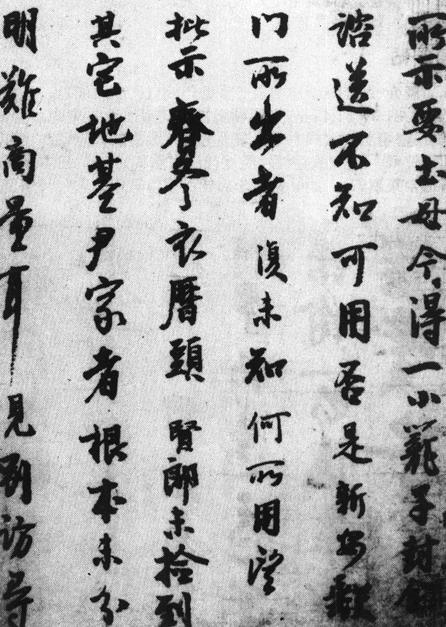 所示要土母今得一小籠子封角
諮送不知可用否是新安缺
門所出者復未知何所用望
批示春冬衣曆頭賢郎未檢到
其宅地基尹家者根本未分
明難商量耳見別訪尋